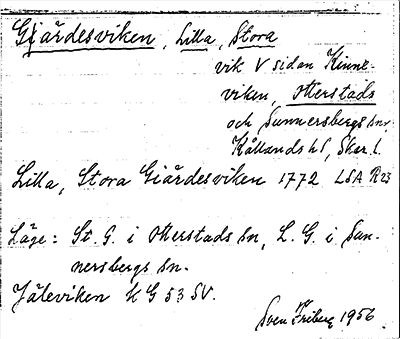 Giärdesviken, Lilla, Stora
vik V sidan Kinne-
viken, Otterstads
och Sunnersbergs snr,
Kållands hd, Skar. l.
Lilla, Stora Giärdesviken 1772 LSA R23
Läge: St. G. i Otterstads sn, L. G. i Sun-
nersbergs sn.
Jäleviken KG 53 SV.
Sven Friberg 1956